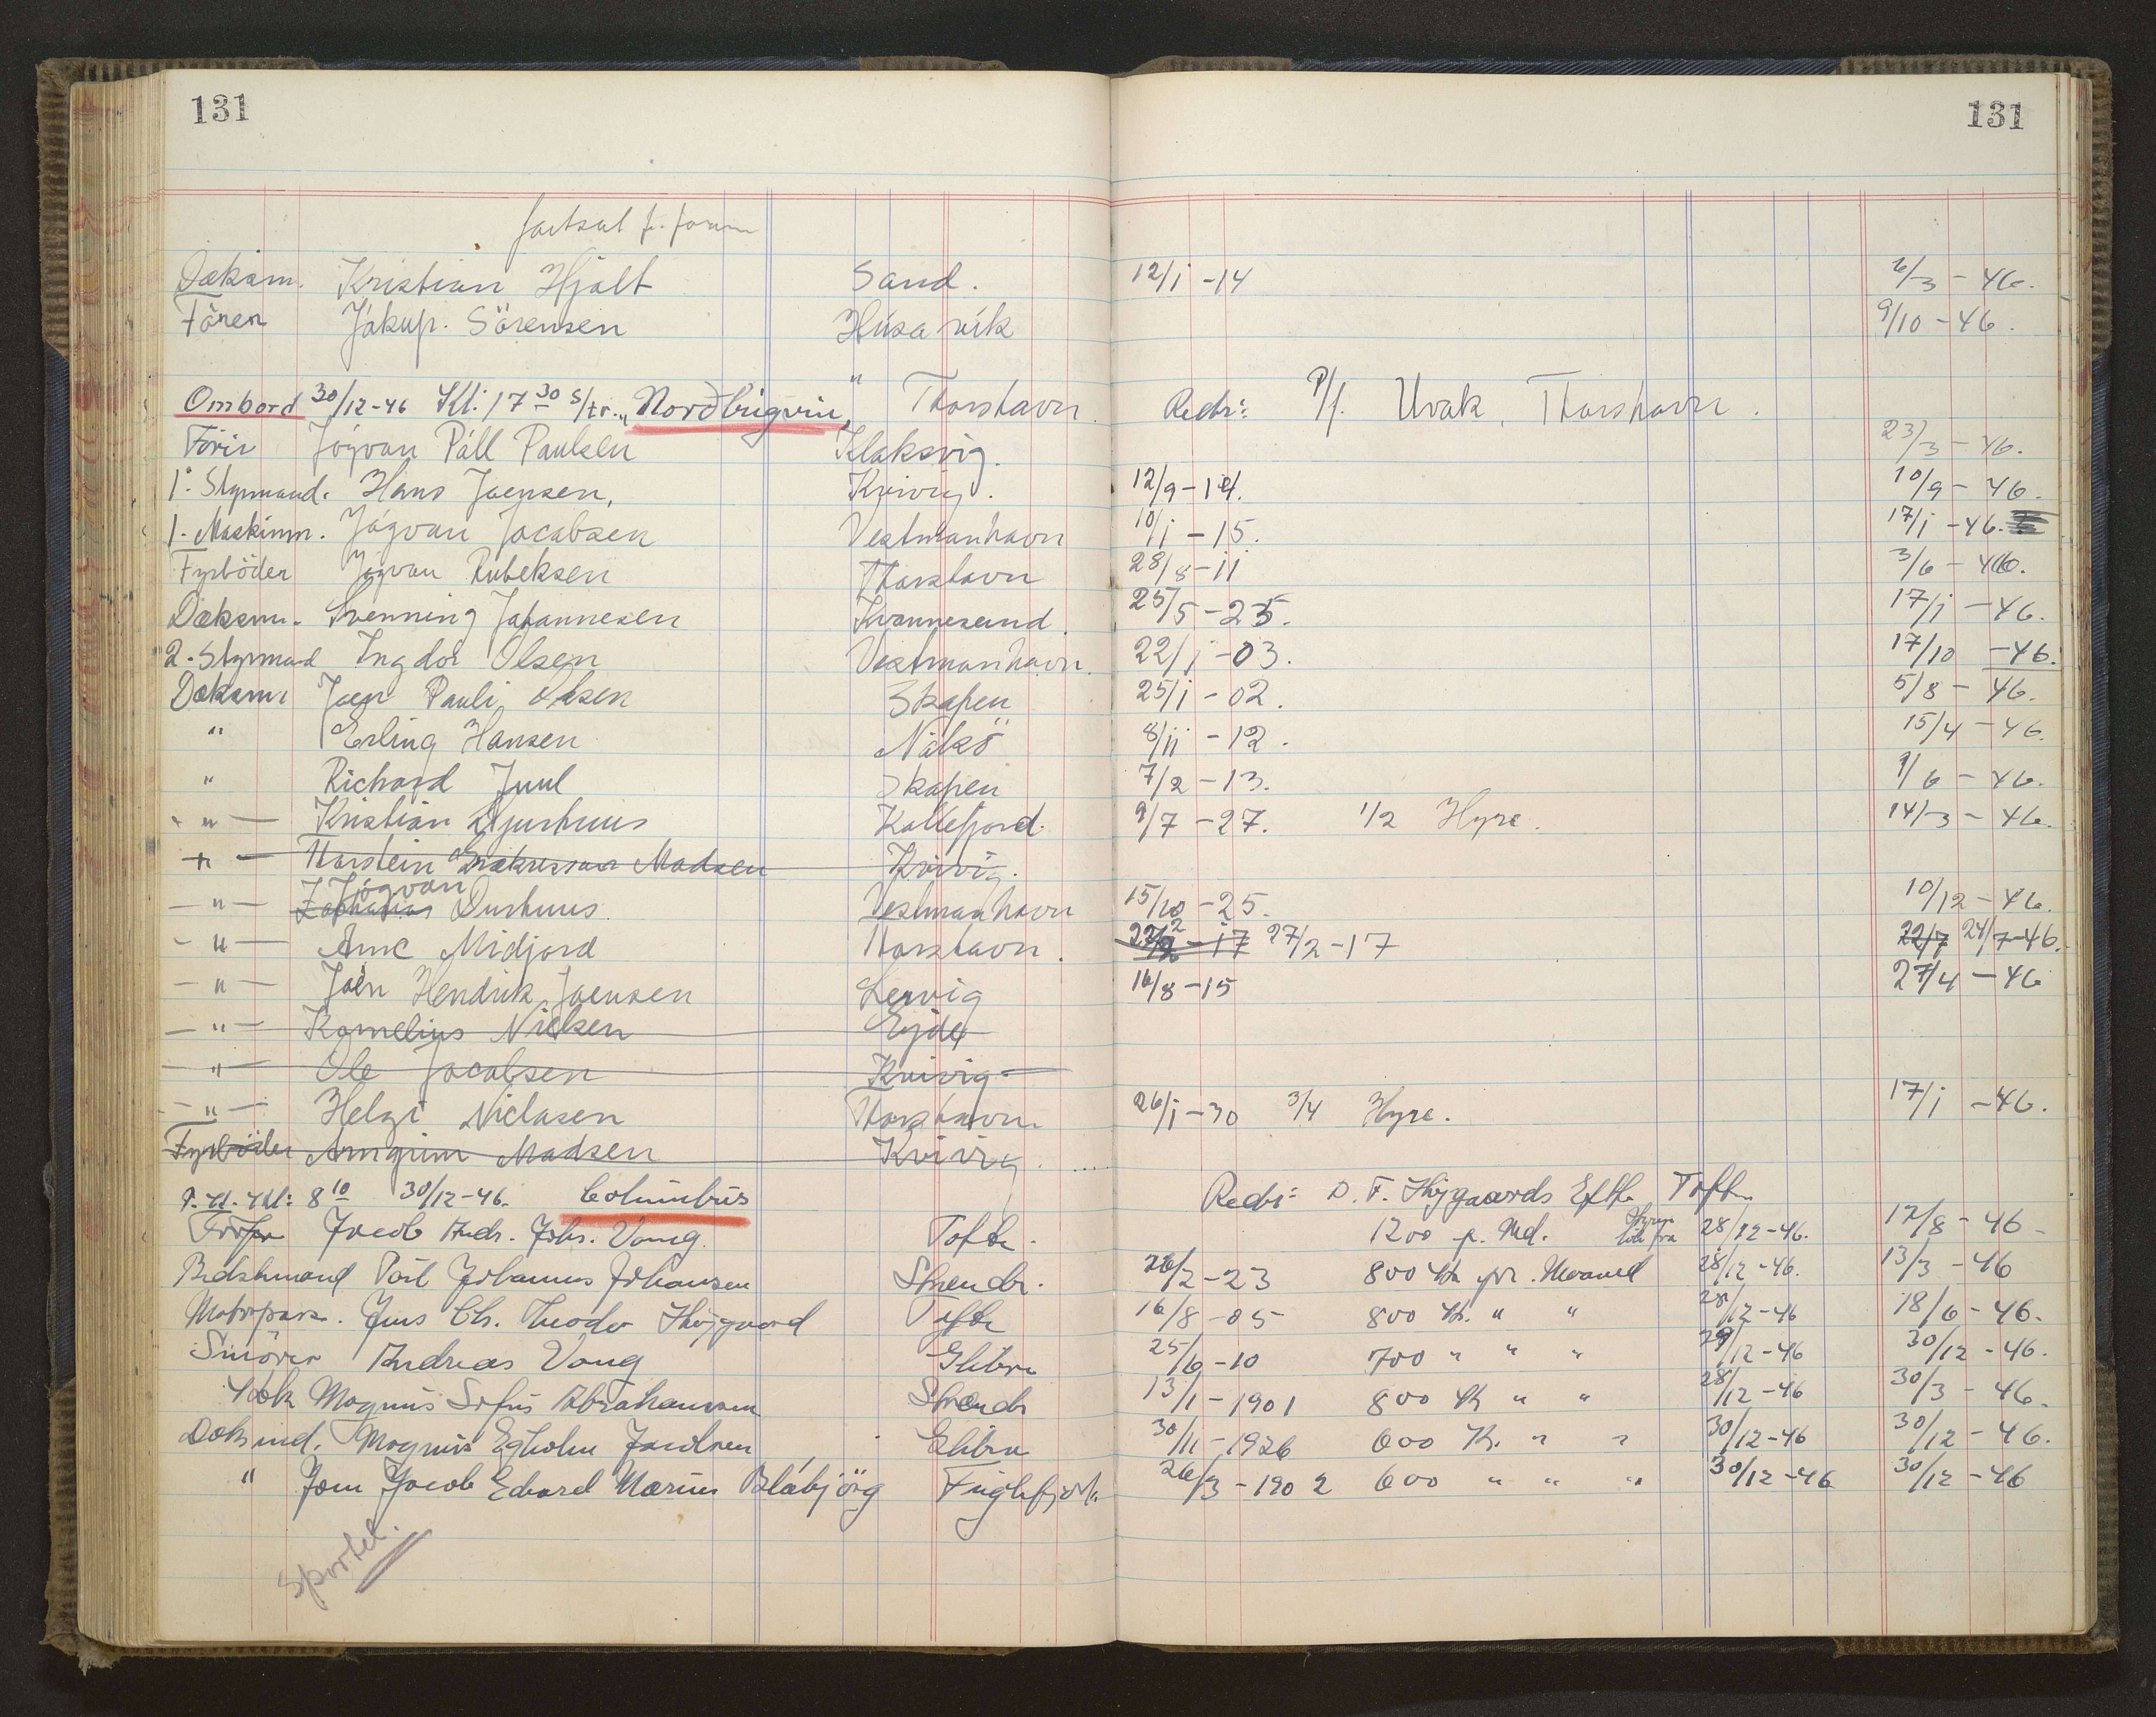 131 131
fortsat f. forum
Dæksm. Kristian Hjalt Sand. 12/1 -14 6/3 - 46.
Fören Jákup. Sörensen Húsavík 9/10 - 46.
Ombord 30/12-46 Kl: 17 30 s/tr. „Nordbugvin" Thorshavn. Redr: P/f. Uvak, Thorshavn.
Förir Jógvan Páll Paulsen Klaksvig. 23/3 - 46.
1. Styrmand. Hans Joensen, Kvivig. 12/9 - 14. 10/9 - 46.
1. Maskinm. Jógvan Jacobsen Vestmanhavn 10/1 - 15. 17/1 - 46.
Fyrböder Jógvan Rubeksen Thorshavn 28/8 - 11 3/6 - 46.
Dæksm. Svenning Johannesen Kvannesund. 25/5 - 25. 17/1 - 46.
2. Styrmand Ingdor Olsen Vestmanhavn. 22/1 - 03. 17/10 - 46.
Dæksm. Joen Pauli Olsen Skapen 25/1 - 02. 5/8 - 46.
" Erling Hansen Nólsö 8/11 - 12. 15/4 - 46.
" Richard Juul Skapen 7/2 - 13. 9/6 - 46.
" Kristian Djurhuus Kollefjord. 9/7 - 27. 1/2 Hyre. 14/3 - 46.
" Madsen Kvivig.
" Jógvan Zacharias Durhuus. Vestmanhavn 15/10 - 25. 10/12 - 46.
" Arne Midjord Thorshavn. 27/2 - 17 27/2 - 17 22/7 24/7-46.
" Joen Hendrik Joensen Lervig 16/8 - 15 27/4 - 46
" Kornelius Nielsen Ejde
" Ole Jacobsen Kvivig
" Helgi Niclasen Thorshavn 26/1 - 30 3/4 Hyre. 17/1 - 46.
Fyrböder Arngrim Madsen Kvivig.
P. Kl: 8 10 30/12-46. Columbus Redr: D. F. Højgaards Eftf. Tofte
Förer Jacob Andr. Johs. Voug. Tofte. 1200 p. Md. Hyren fra 28/12-46. 12/8 - 46
Bedstmand Pól Johannus Johansen Strendr. 26/2 - 23 800 Kr pr. Maaned 28/12-46. 13/3 - 46
Motorpas. Jens Chr. Theodor Højgaard Tofte 16/8 - 05 800 Kr. " " 28/12-46 18/6 - 46.
Smörer Andreas Voug Glibre 25/6 - 10 700 " " " 29/12-46 30/12 - 46.
Kok Magnus Sofus Abrahamsen Strendr 13/1 - 1901 800 Kr " " 28/12-46 30/3 - 46.
Doksmd. Magnus Egholm Jacobsen Glibre 30/11 - 1926 600 Kr. " " 30/12-46 30/12 - 46.
" Jom Jacob Edvard Marius Blábjörg Fuglefjord. 26/3 - 1902 600 " " " 30/12-46 30/12 - 46
Sportel.